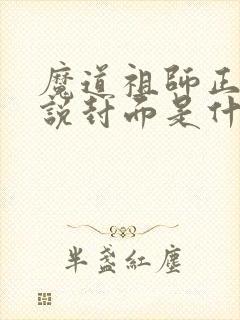 魔道祖師正
說封面是什
半盞紅塵